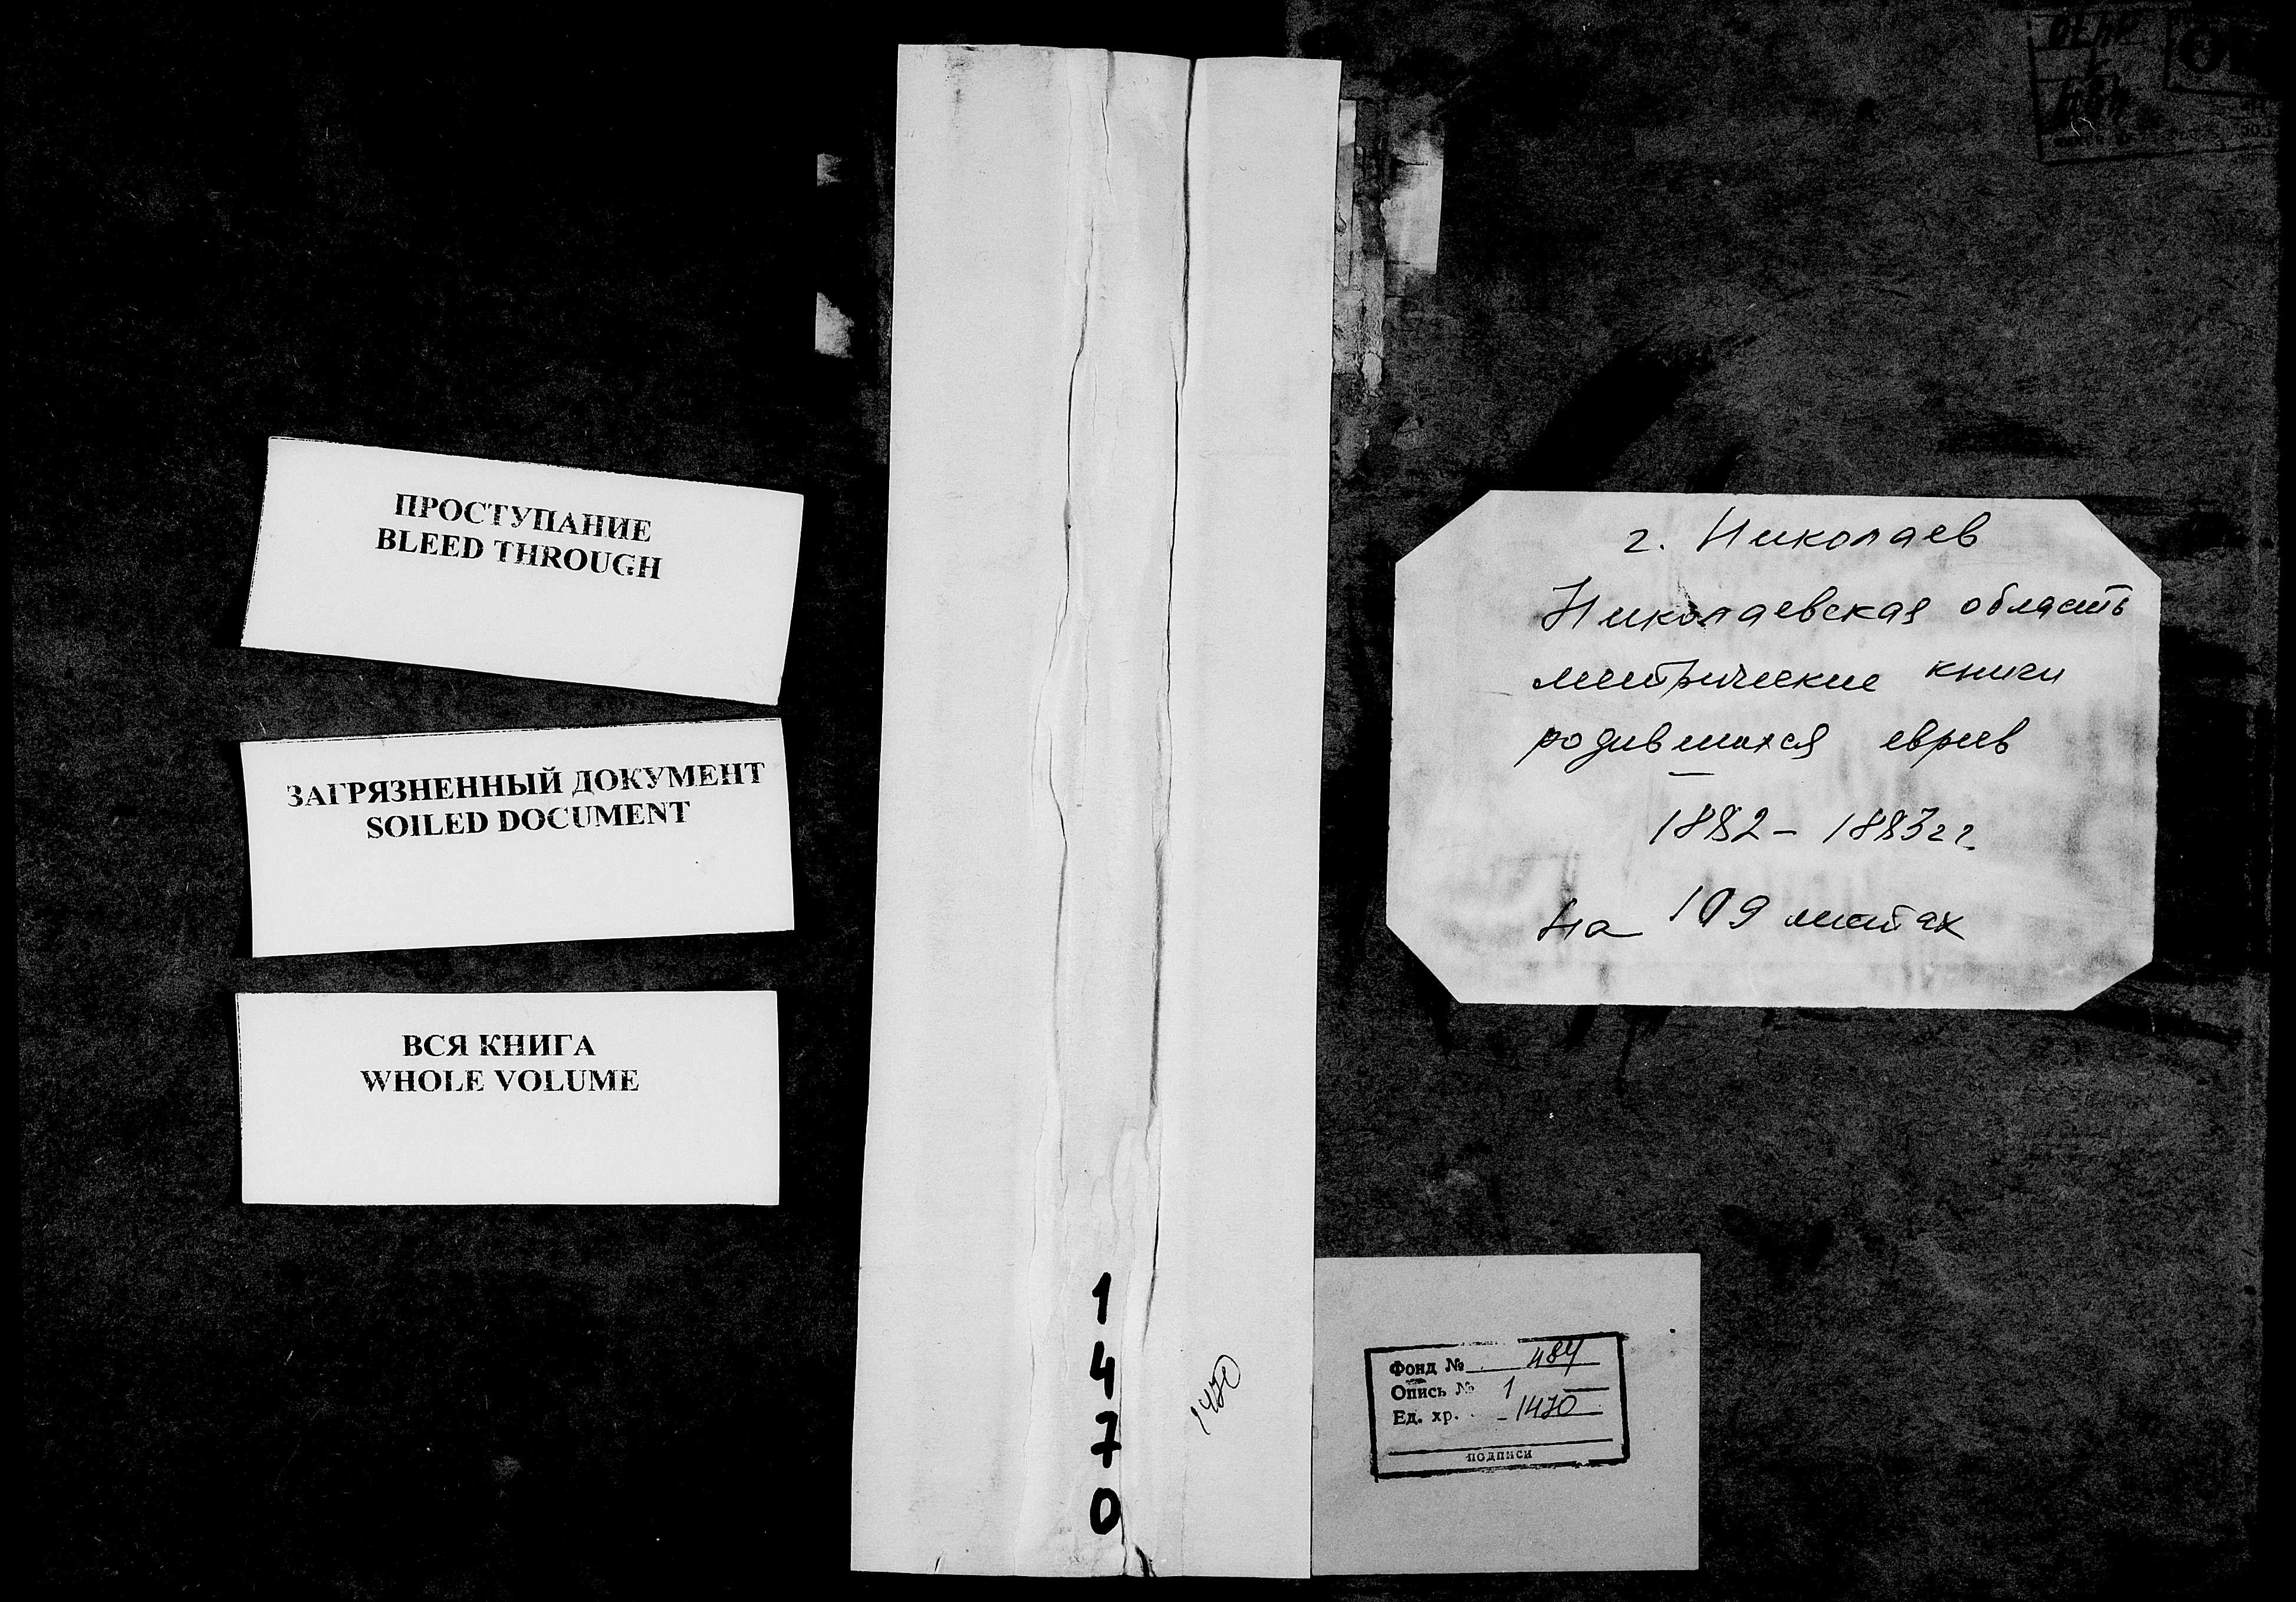 ПРОСТУПАНИЕ
BLEED THROUGH
ЗАГРЯЗНЕННЫЙ ДОКУМЕНТ
SOILED DOCUMENT
ВСЯ КНИГА
WHOLE VOLUME
1
4
7
0
1470
г. Николаев
Николаевская область
метрические книги
родившихся евреев
1882 - 1883 гг.
на 109 листах
Фонд № 484
Опись № 1
Ед. хр. 1470
подписи